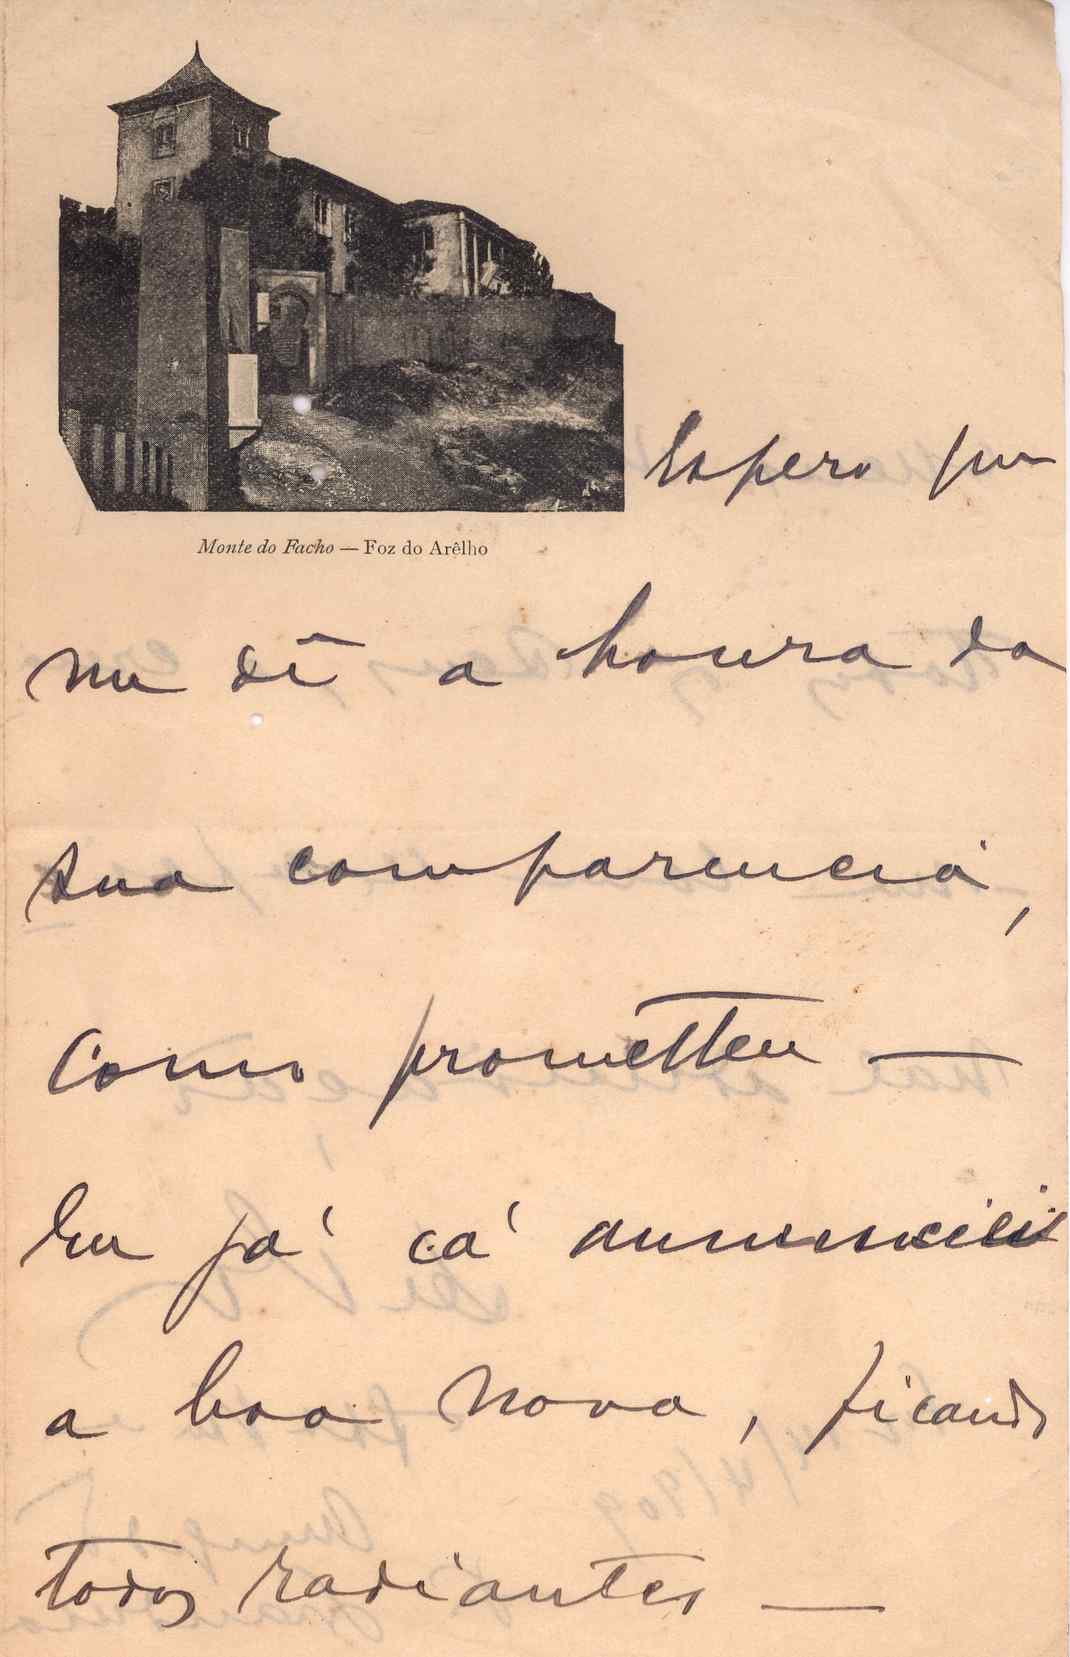 Monte do Facho — Foz do Arêlho
Espero que
me dê a honra da
sua comparencia,
como prometteu —
Eu já cá annunciei
a boa nova, ficando
todos radiantes —